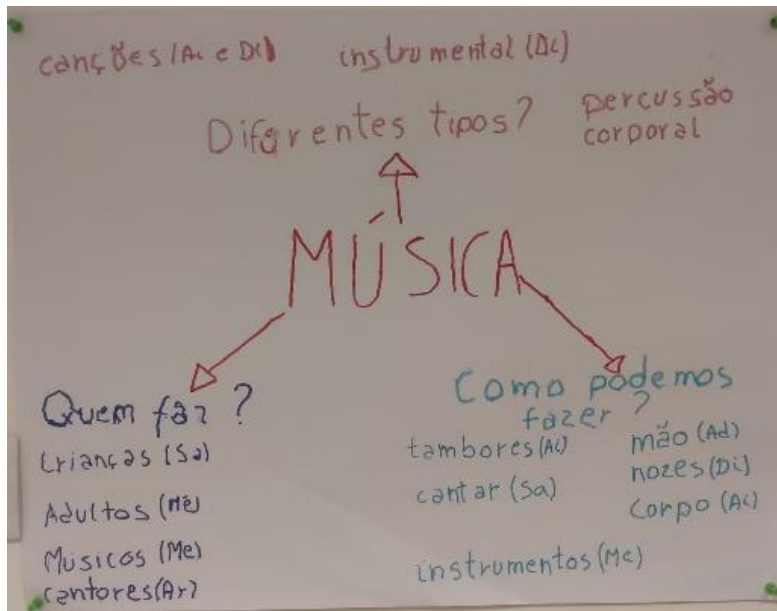 canções (Ac e Di) instrumental (Ac)
Diferentes tipos? percussão
corporal
MÚSICA
Quem faz?
Crianças (Sa)
Adultos (Me)
Músicos (Me)
Cantores (Ar)
Como podemos
fazer?
tambores (Ac) mão (Ad)
cantar (Sa) nozes (Di)
Corpo (Ac)
instrumentos (Mc)